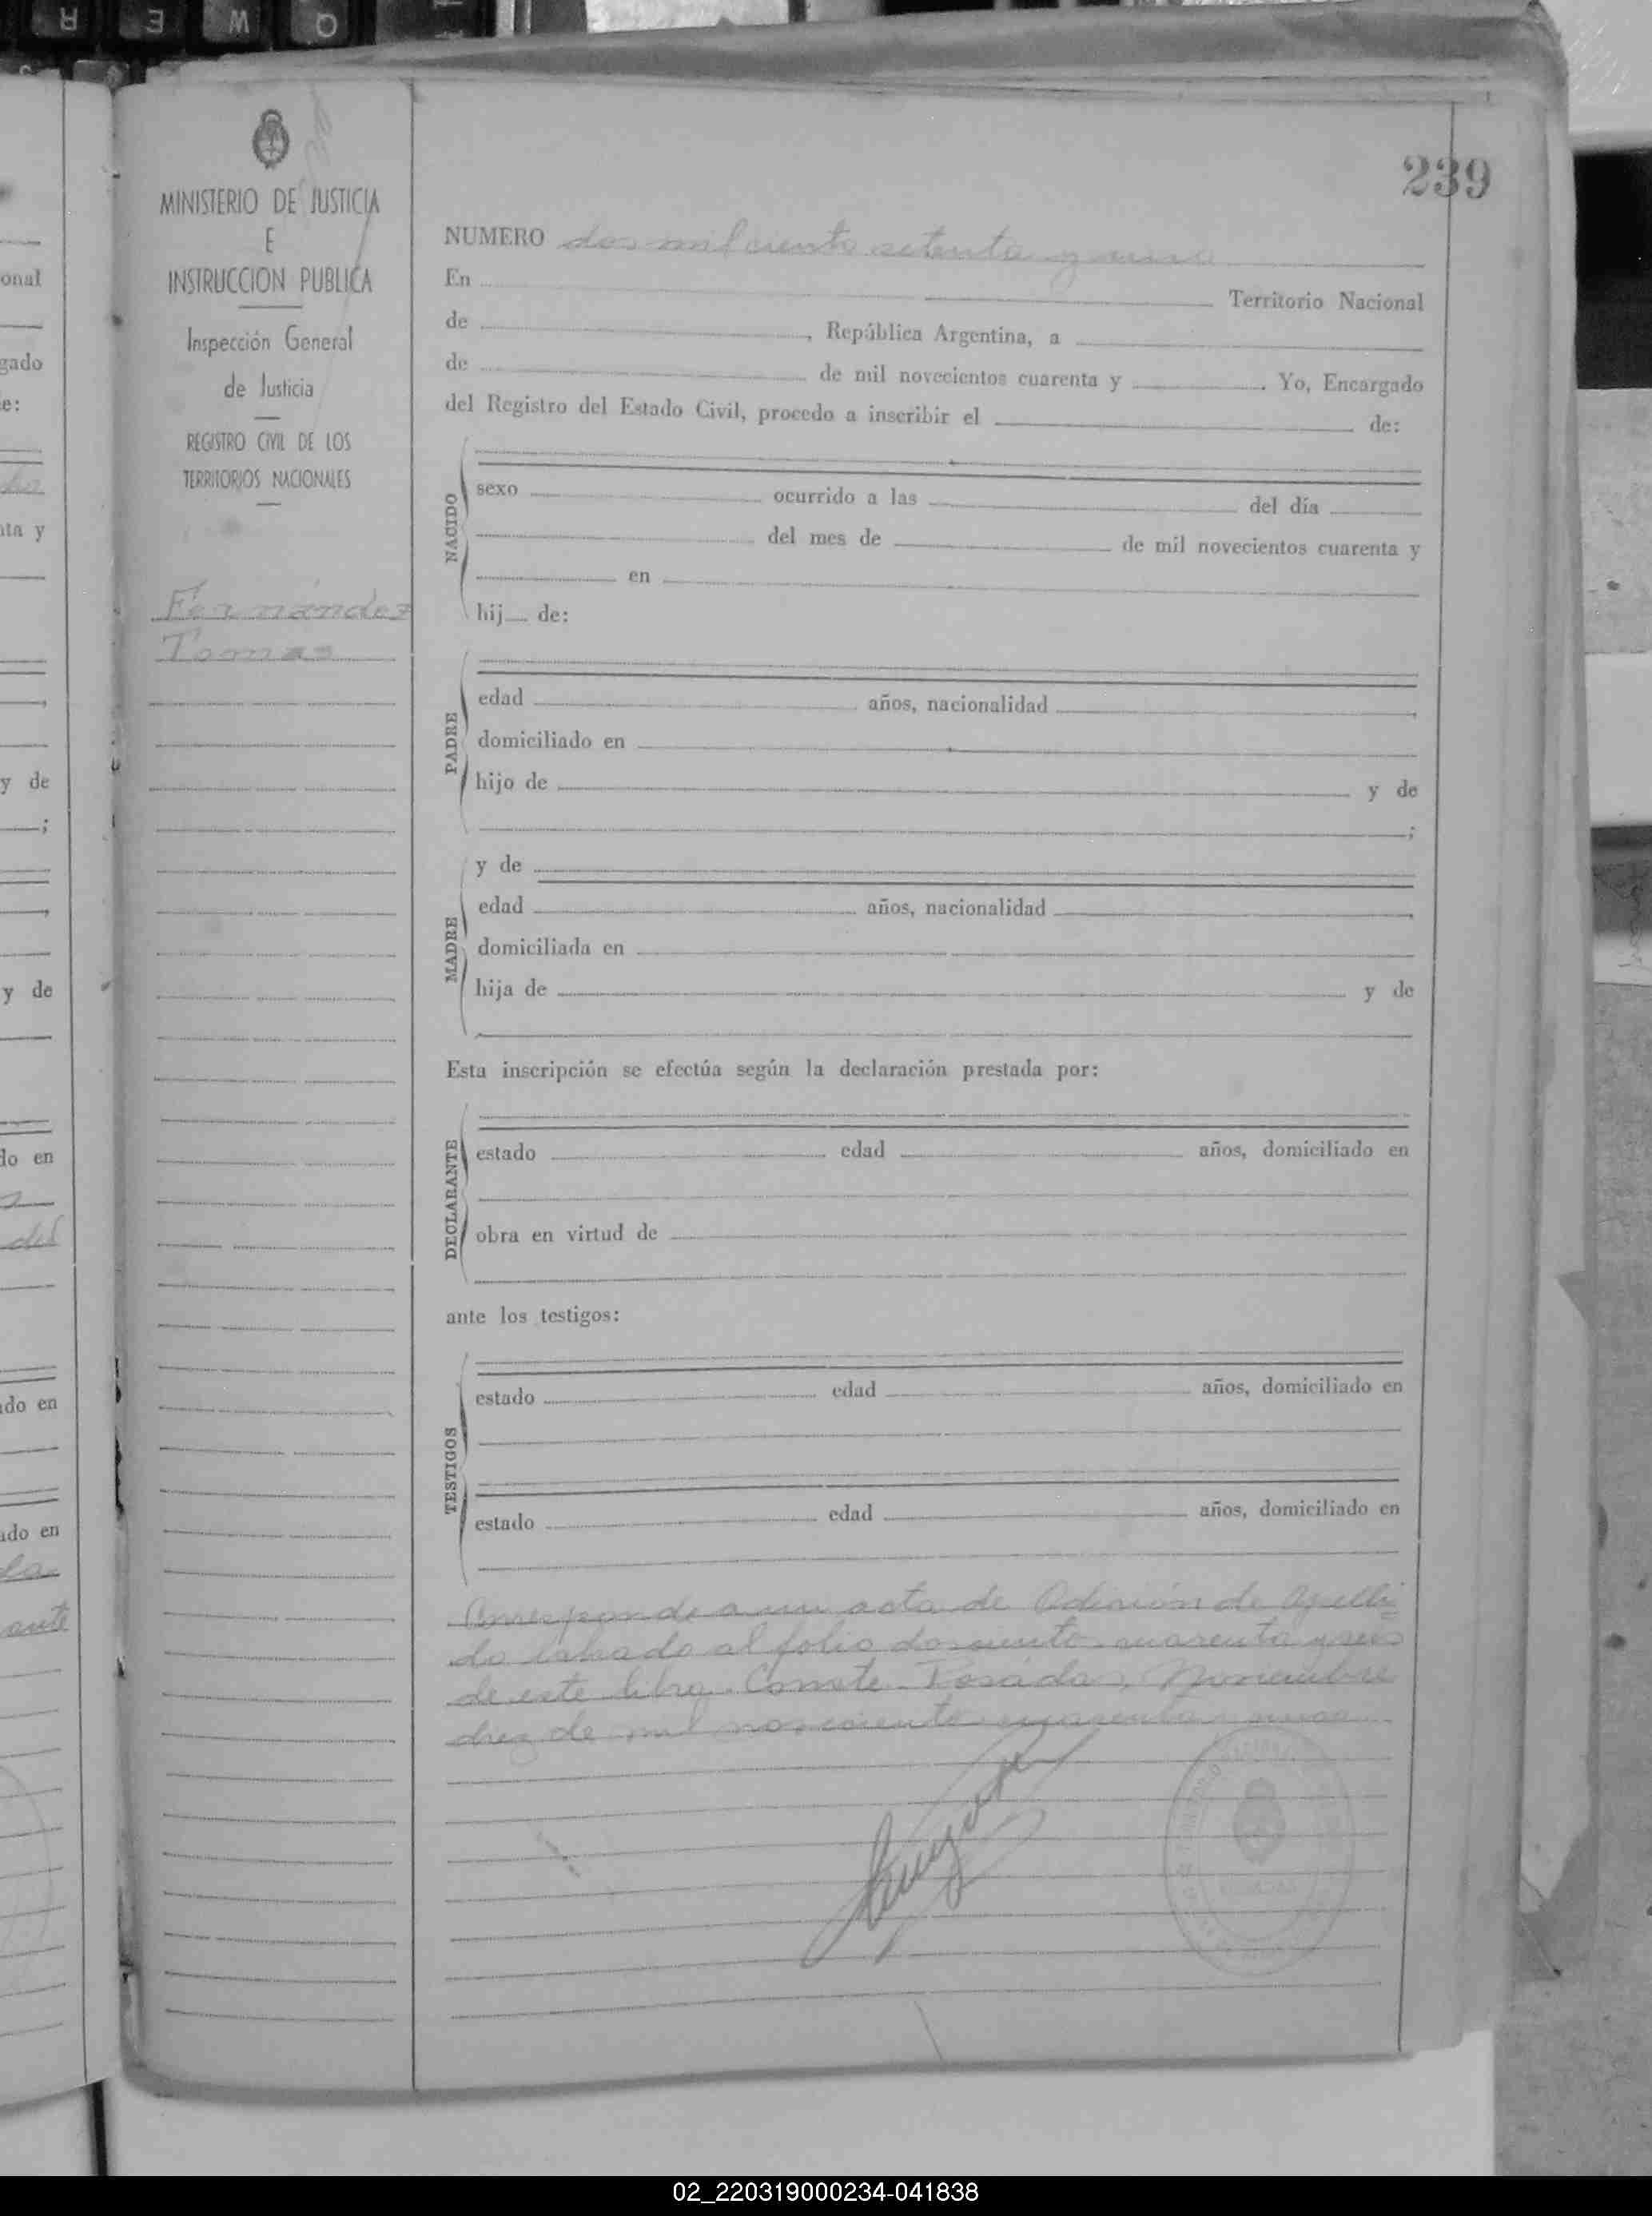 239
MINISTERIO DE JUSTICIA
E
INSTRUCCION PUBLICA
Inspección General
de Justicia
REGISTRO CIVIL DE LOS
TERRITORIOS NACIONALES
Fernández
Tomas
NUMERO dos mil ciento setenta y uno
En Territorio Nacional
de , República Argentina, a
de de mil novecientos cuarenta y . Yo, Encargado
del Registro del Estado Civil, procedo a inscribir el de:
NACIDO
sexo ocurrido a las del día
del mes de de mil novecientos cuarenta y
en
hij de:
PADRE
edad años, nacionalidad ,
domiciliado en
hijo de y de
;
MADRE
y de
edad años, nacionalidad ,
domiciliada en
hija de y de
Esta inscripción se efectúa según la declaración prestada por:
DECLARANTE
estado edad años, domiciliado en
obra en virtud de
ante los testigos:
TESTIGOS
estado edad años, domiciliado en
estado edad años, domiciliado en
Corresponde a un acta de Adición de Apelli=
do labrado al folio dosciento cuarenta y
de este libro. Conste. Posadas, Noviembre
diez de mil novesciento cuarenta
onal
gado
e:
nta y
y de
;
y de
do en
del
ado en
ado en
02_220319000234-041838